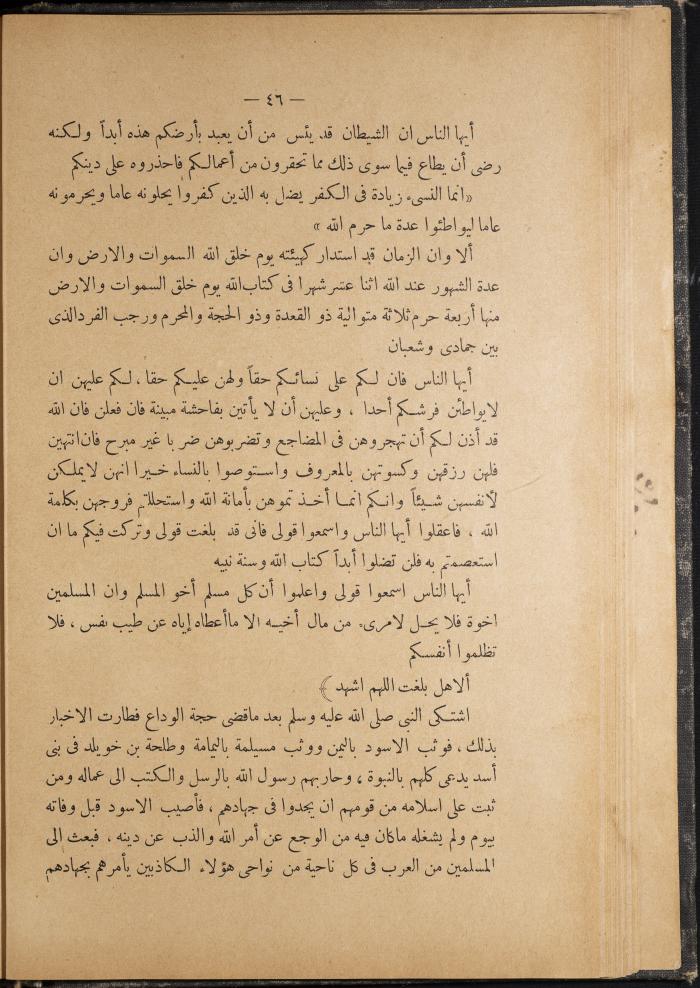 — ٤٦ —
أيها الناس ان الشيطان قد يئس من أن يعبد بأرضكم هذه أبداً ولكنه
رضى أن يطاع فيما سوى ذلك مما تحقرون من أعمالكم فاحذروه على دينكم
«انما النسىء زيادة فى الكفر يضل به الذين كفروا يحلونه عاما ويحرمونه
عاما ليواطئوا عدة ما حرم الله »
ألا وان الزمان قد استدار كهيئته يوم خلق الله السموات والارض وان
عدة الشهور عند الله اثنا عشر شهرا فى كتاب الله يوم خلق السموات والارض
منها أربعة حرم ثلاثة متوالية ذو القعدة وذو الحجة والمحرم ورجب الفرد الذى
بين جمادى وشعبان
أيها الناس فان لكم على نسائكم حقاً ولهن عليكم حقا ، لكم عليهن ان
لا يواطئن فرشكم أحدا ، وعليهن أن لا يأتين بفاحشة مبينة فان فعلن فان الله
قد أذن لكم أن تهجروهن فى المضاجع وتضربوهن ضر با غير مبرح فان انتهين
فلهن رزقهن وكسوتهن بالمعروف واستوصوا بالنساء خيرا انهن لا يملكن
لأنفسهن شيئاً وانكم انما أخذ تموهن بأمانة الله واستحللتم فروجهن بكلمة
الله ، فاعقلوا أيها الناس واسمعوا قولى فانى قد بلغت قولى وتركت فيكم ما ان
استعصمتم به فلن تضلوا أبداً كتاب الله وسنة نبيه
أيها الناس اسمعوا قولى واعلموا أن كل مسلم أخو المسلم وان المسلمين
اخوة فلا يحل لامرىء من مال أخيه الا ما أعطاه إياه عن طيب نفس ، فلا
تظلموا أنفسكم
ألا هل بلغت اللهم اشهد ﴾
اشتكى النبى صلى الله عليه وسلم بعد ماقضى حجة الوداع فطارت الاخبار
بذلك ، فوثب الاسود باليمن ووثب مسيلمة باليمامة وطلحة بن خويلد فى بنى
أسد يدعى كلهم بالنبوة ، وحاربهم رسول الله بالرسل والكتب الى عماله ومن
ثبت على اسلامه من قومهم ان يجدوا فى جهادهم ، فأصيب الاسود قبل وفاته
بيوم ولم يشغله ما كان فيه من الوجع عن أمر الله والذب عن دينه ، فبعث الى
المسلمين من العرب فى كل ناحية من نواحى هؤلاء الكاذبين يأمرهم بجهادهم